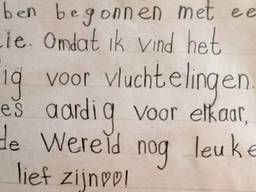 ben begonnen met ee
ie. Omdat ik vind het
ig voor vluchtelingen.
es aardig voor elkaar,
de Wereld nog leuke
lief zijn♡♡!